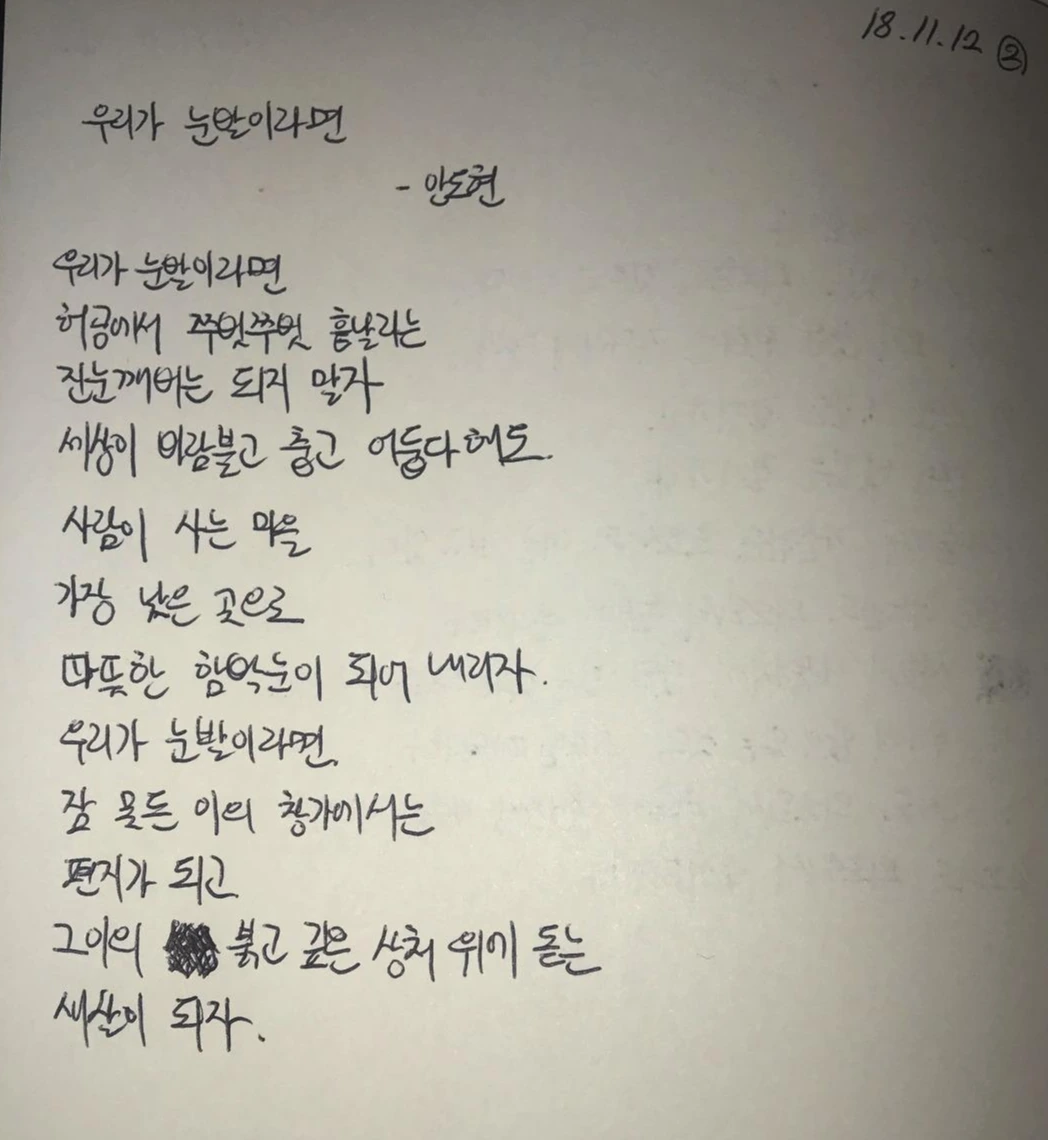 18.11.12 ②
우리가 눈발이라면
- 안도현
우리가 눈발이라면
허공에서 쭈빗쭈빗 흩날리는
진눈깨비는 되지 말자
세상이 바람불고 춥고 어둡다해도
사람이 사는 마을
가장 낮은 곳으로
따뜻한 함박눈이 되어 내리자.
우리가 눈발이라면,
잠 못든 이의 창가에서는
편지가 되고
그이의 붉고 깊은 상처 위에 돋는
새살이 되자.